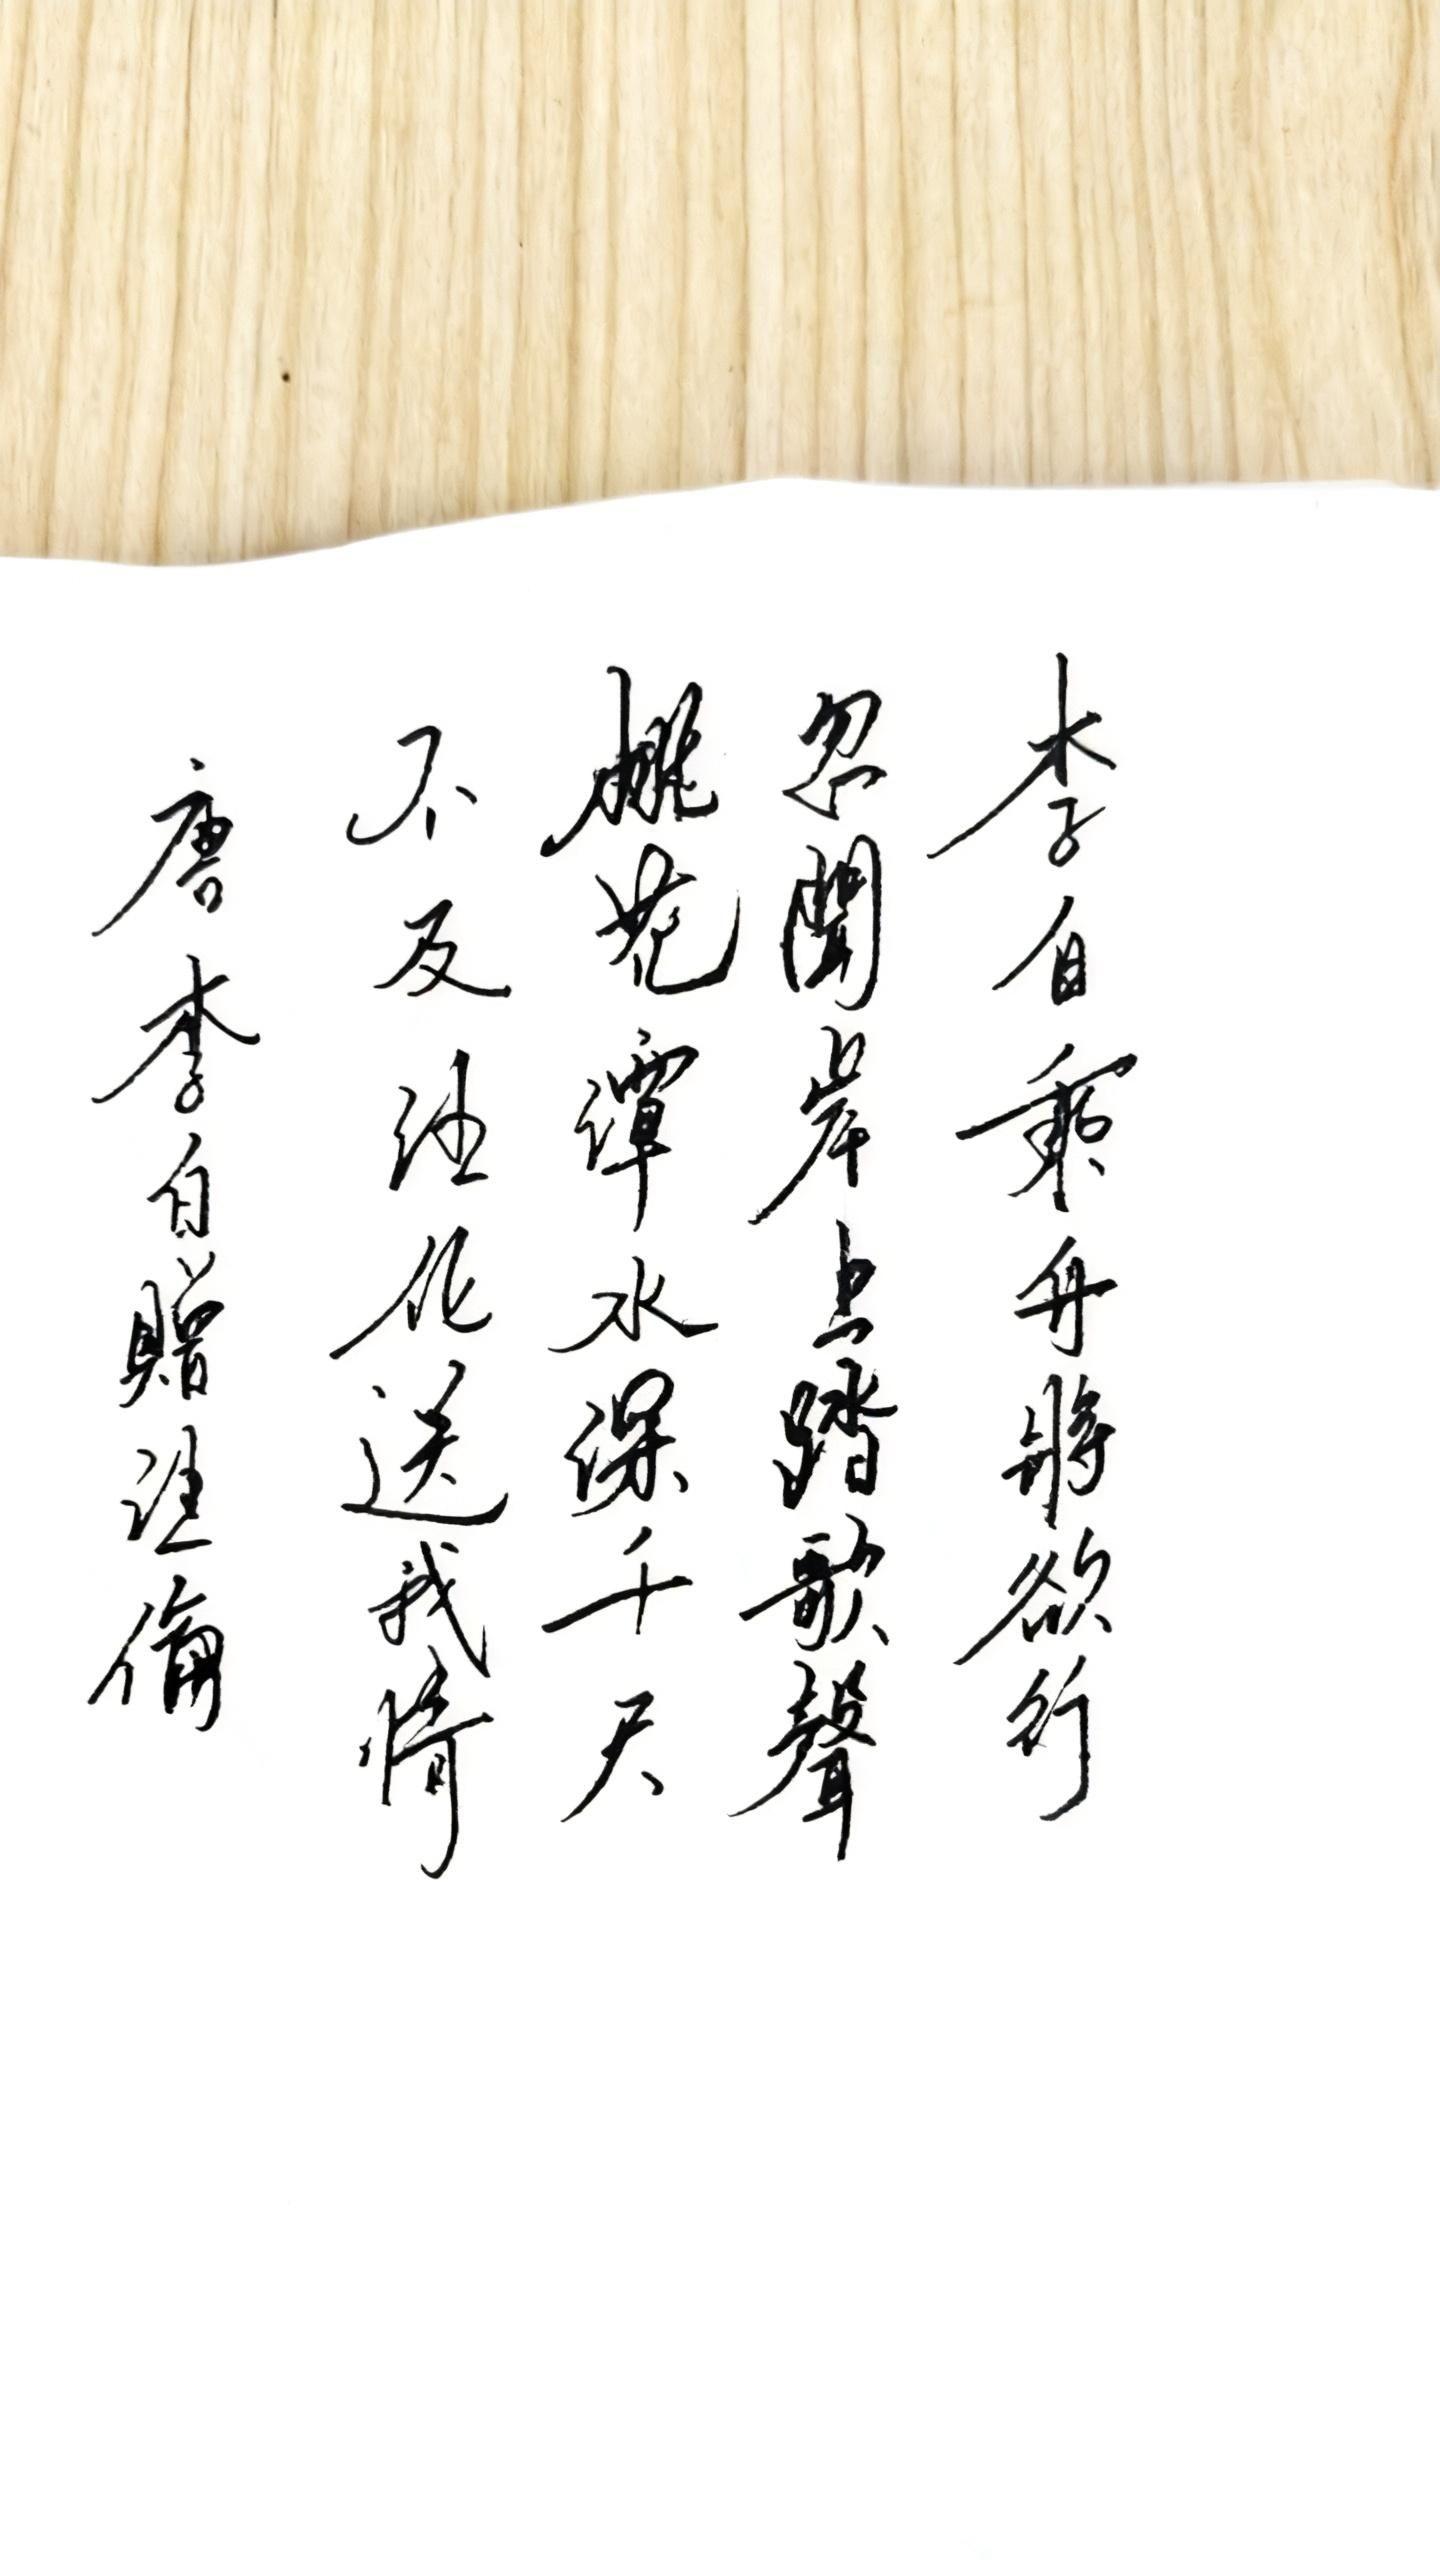 李白乘舟將欲行
忽聞岸上踏歌聲
桃花潭水深千尺
不及汪倫送我情
唐李白贈汪倫